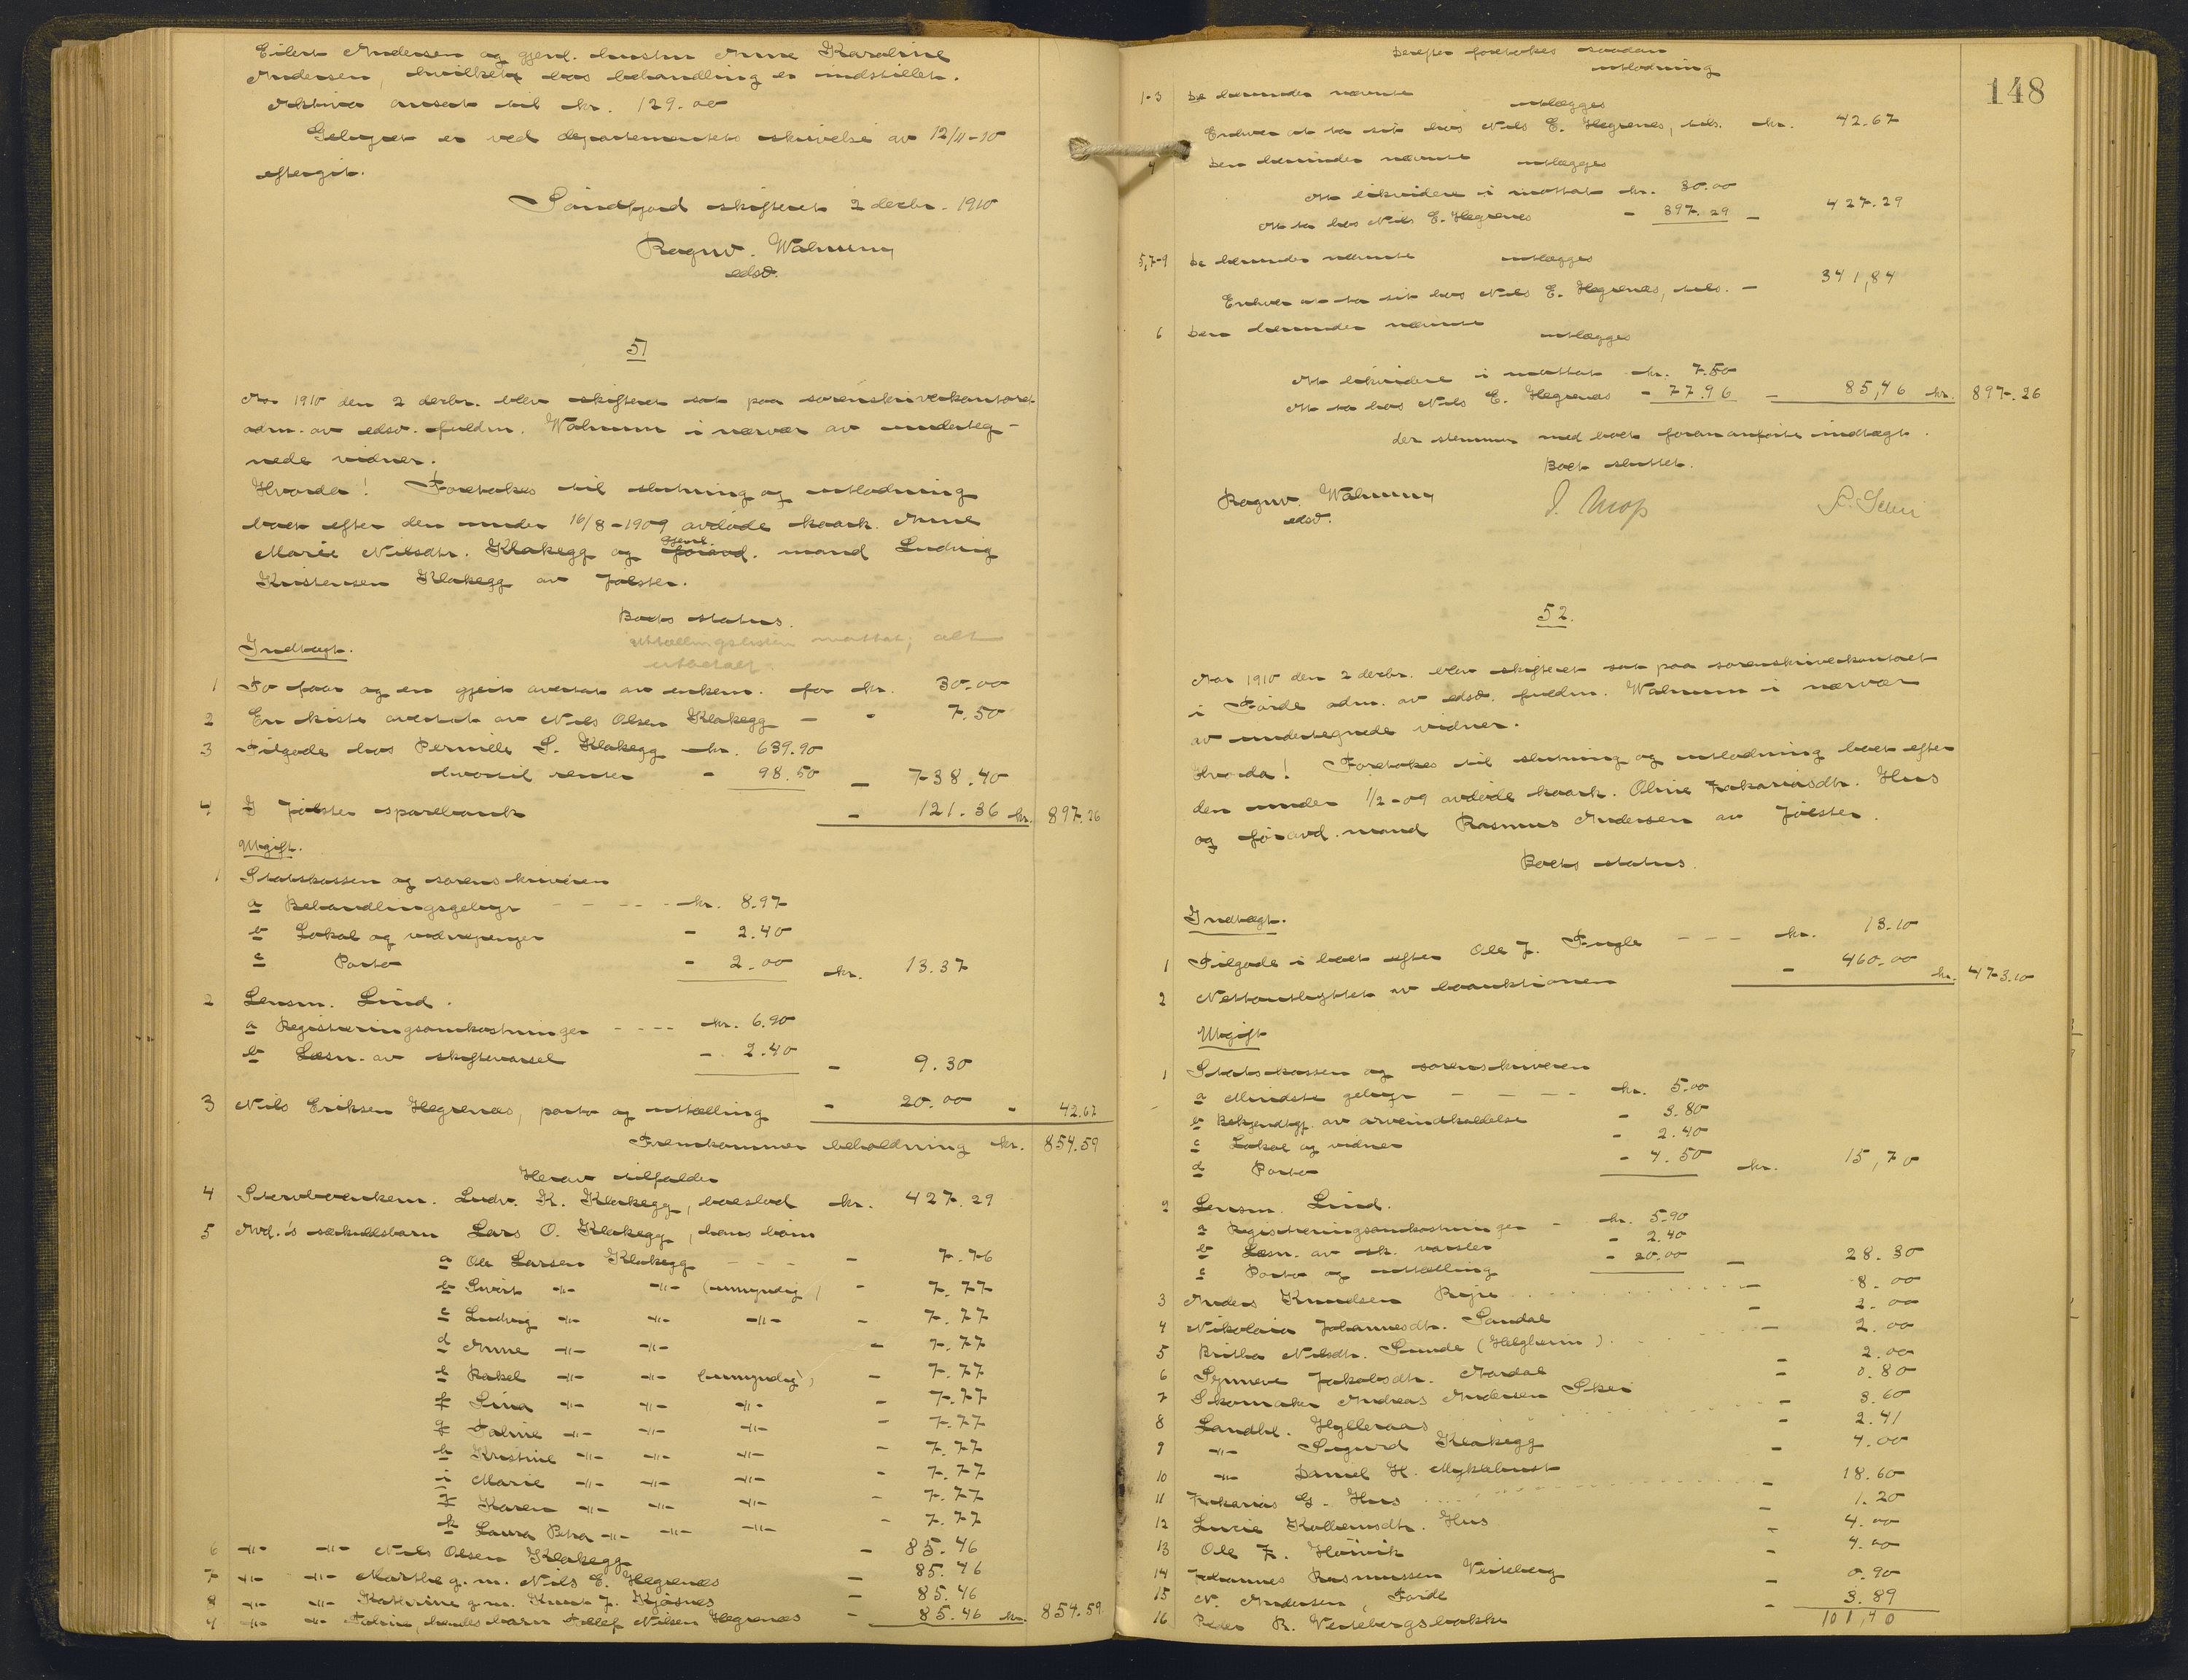 Eilert Andersen og gjenl. hustru Anne Karoline
Andersen, hvilket bos behandling er indstillet.
Aktiva ansat til kr. 129.00
Gebyret er ved departementets skrivelse av 12/11-10
eftergit.
Söndfjord skifteret 2 decbr. 1910
Ragnv. Walnum
edsv.
51
Aar 1910 den 2 decbr. blev skifteret sat paa sorenskriverkontoret
adm. av edsv. fuldm. Walnum i nærvær av underteg-
nede vidner.
Hvorda! Foretokes til slutning og utlodning
boet efter den under 16/8-1909 avdöde kaark. Anne
Marie Nilsdtr. Klakegg og gjenl. mand Ludvig
Kristensen Klakegg av Jölster.
Boets status.
utbetalt.
Indtægt.
1 To faar og en gjeit overtat av enkem. for kr. 30.00
2 En kiste overtat av Nils Olsen Klakegg - - 7.50
3 Tilgode hos Pernille S. Klakegg kr. 639.90
hvortil renter - 98.50 - 738.40
4 I Jölster sparebank - 121.36 kr. 897.26
Utgift.
1 Statskassen og sorenskriveren
a Behandlingsgebyr - - - - kr. 8.97
b Lokal og vidnepenger - 2.40
c Porto - 2.00 kr. 13.37
2 Lensm. Lind.
a Registreringsomkostninger - - - - kr. 6.90
b Læsn. av skiftevarsel - 2.40 - 9.30
3 Nils Eriksen Hegrenæs, porto og uttælling - 20.00 - 42.67
Fremkommer beholdning kr. 854.59
Herav tilfalder
4 Stervboenkem. Ludv. K. Klakegg, boeslod kr. 427.29
5 Avd.'s söskendebarn Lars O. Klakegg, hans börn
a Ole Larsen Klakegg - - - - 7.76
b Sivert -"- -"- (umyndig) - 7.77
c Ludvig -"- -"- -"- - 7.77
d Anne -"- -"- - 7.77
e Rakel -"- -"- (umyndig) - 7.77
f Lina -"- -"- -"- - 7.77
g Taline -"- -"- -"- - 7.77
h Kristine -"- -"- -"- - 7.77
i Marie -"- -"- -"- - 7.77
j Karen -"- -"- -"- - 7.77
k Laura Petra -"- -"- -"- - 7.77
6 -"- -"- Nils Olsen Klakegg - 85.46
7 -"- -"- Marthe g.m. Nils E. Hegrenæs - 85.46
8 -"- -"- Kathrine g.m. Knut J. Kjösnes - 85.46
9 -"- -"- hendes barn Nilsen Hegrenæs - 85.46 kr. 854.59
148
Derefter foretokes saadan
utlodning
1-3 De herunder nævnte utlægges
Enhver at ta sit hos Nils E. Hegrenes, tils. kr. 42.67
4 Den herunder nævnte utlægges
At likvidere i mottat kr. 30.00
At ta hos Nils E. Hegrenes - 397.29 - 427.29
5,7-9 De herunder nævnte utlægges
Enhver at ta sit hos Nils E. Hegrenæs, tils. - 341,84
6 Den herunder nævnte utlægges
At likvidere i mottat kr. 7.50
At ta hos Nils E. Hegrenæs - 77.96 - 85,46 kr. 897.26
der stemmer med boets foran anförte indtægt.
Boet sluttet.
Ragnv. Walnum
edsv.
52.
Aar 1910 den 2 decbr. blev skifteret sat paa sorenskriverkontoret
i Förde adm. av edsv. fuldm. Walnum i nærvær
av undertegnede vidner.
Hvorda! Foretokes til slutning og utlodning boet efter
den under 1/2-09 avdöde kaark. Oline Zakariasdtr. Hus
og föravd. mand Rasmus Andersen av Jölster.
Boets status.
Indtægt.
1 Tilgode i boet efter Ole J. Fugle - - - kr. 13.10
2 Nettoutbyttet av boauktionen - 460.00 kr. 473.10
Utgift
1 Statskassen og sorenskriveren
a Mindste gebyr - - - - kr. 5.00
b Bekjendtgj. av arveindkaldelse - 3.80
c Lokal og vidner - 2.40
d Porto - 4.50 kr. 15,70
2 Lensm. Lind.
a Registreringsomkostninger - kr. 5.90
b Læsn. av sk. varsler - 2.40
c Porto og uttælling - 20.00 - 28.30
3 Anders Knudsen - 8.00
4 Nikolaia Johannesdtr. Sandal - 2.00
5 Britha Nilsdtr. Sunde (Helgheim) - 2.00
6 Synneve Jakobsdtr. Aardal - 2.00
7 Skomaker Andreas Andersen Skei - 0.80
8 Landhl. Hylleraas - 3.60
9 -"- Sigurd Klakegg - 2.41
10 -"- Daniel H. Myklebust - 4.00
11 Zakarias G. Hus - 18.60
12 Lucie Kolbensdtr. Hus - 1.20
13 Ole Z. Höivik - 4.00
14 Johannes Rasmussen Veiteberg - 4.00
15 N. Andersen, Förde - 0.90
16 Peder R. Veitebergsbakke - 3.89
101,40